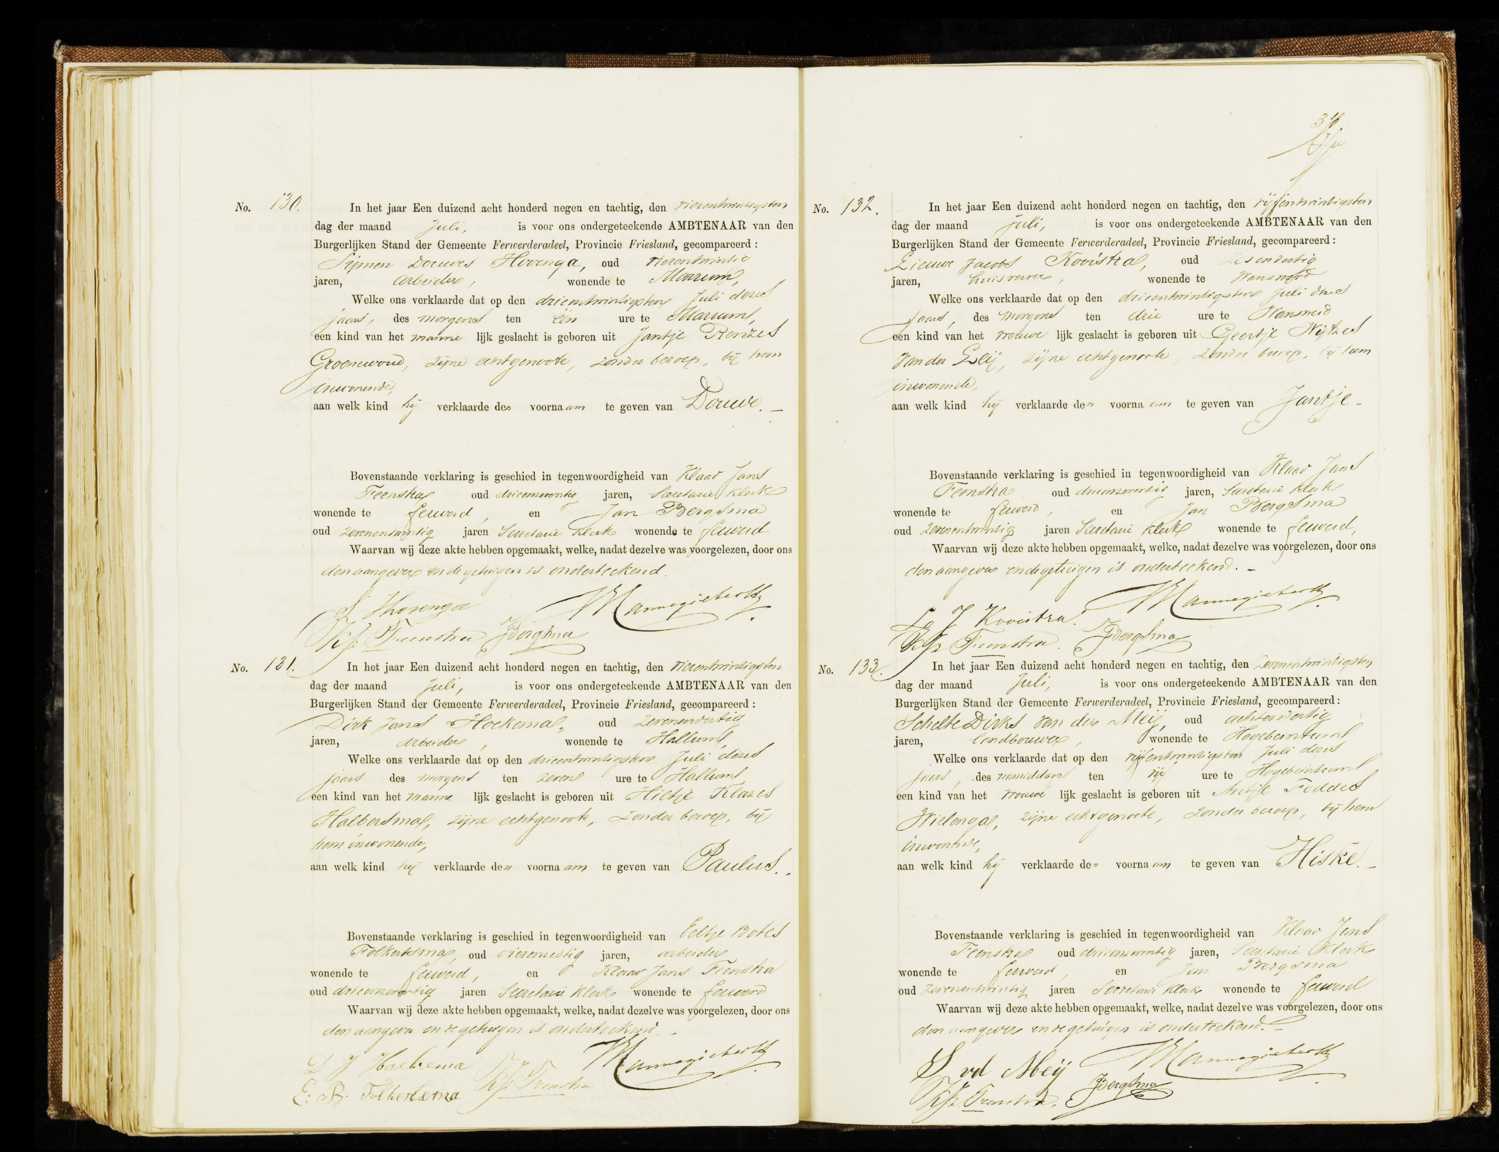 No. 130. In het jaar Een duizend acht honderd negen en tachtig, den vierentwintigsten
dag der maand Juli, is voor ons ondergeteekende AMBTENAAR van den
Burgerlijken Stand der Gemeente Ferwerderadeel, Provincie Friesland, gecompareerd:
Sijmen Douwes Hovenga, oud vierentwintig
jaren, arbeider, wonende te Marrum,
Welke ons verklaarde dat op den drieentwintigsten Juli dezes
jaars, des morgens ten één ure te Marrum,
een kind van het manne lijk geslacht is geboren uit Jantje Renzes
Groenewoud, zijne echtgenoote, zonder beroep, bij hem
inwonende,
aan welk kind hij verklaarde den voornaam te geven van Douwe. —
Bovenstaande verklaring is geschied in tegenwoordigheid van Klaas Jans
Feenstra oud drieenzeventig jaren, Secretarie Klerk
wonende te Ferwerd, en Jan Bergsma
oud zevenentwintig jaren Secretarie Klerk wonende te Ferwerd
Waarvan wij deze akte hebben opgemaakt, welke, nadat dezelve was voorgelezen, door ons
den aangever en de getuigen is onderteekend.
S. Hovenga
Kl. Js. Feenstra JBergsma
No. 131. In het jaar Een duizend acht honderd negen en tachtig, den vierentwintigsten
dag der maand Juli, is voor ons ondergeteekende AMBTENAAR van den
Burgerlijken Stand der Gemeente Ferwerderadeel, Provincie Friesland, gecompareerd:
Dirk Jans Hoekema, oud zevenendertig
jaren, arbeider, wonende te Hallum,
Welke ons verklaarde dat op den drieentwintigsten Juli dezes
jaars des morgens ten zeven ure te Hallum,
een kind van het manne lijk geslacht is geboren uit Hiltje Klazes
Halbersma, zijne echtgenoote, zonder beroep, bij
hem inwonende,
aan welk kind hij verklaarde den voornaam te geven van Paulus. —
Bovenstaande verklaring is geschied in tegenwoordigheid van Eeltje Botes
Folkertsma, oud jaren, arbeider
wonende te Ferwerd, en Klaas Jans Feenstra
oud drieenzeventig jaren Secretarie Klerk wonende te Ferwerd
Waarvan wij deze akte hebben opgemaakt, welke, nadat dezelve was voorgelezen, door ons
den aangever en de getuigen is onderteekend. —
D J Hoekema
E. B. Folkertsma
No. 132. In het jaar Een duizend acht honderd negen en tachtig, den vijfentwintigsten
dag der maand Juli, is voor ons ondergeteekende AMBTENAAR van den
Burgerlijken Stand der Gemeente Ferwerderadeel, Provincie Friesland, gecompareerd:
Lieuwe Jacobs Kooistra, oud
jaren, wonende te Wanswerd
Welke ons verklaarde dat op den drieentwintigsten Juli dezes
jaars, des morgens ten drie ure te Wanswerd
een kind van het vrouwe lijk geslacht is geboren uit Geertje Wijtzes
van der Zeeij, zijne echtgenoote, zonder beroep, bij hem
inwonende,
aan welk kind hij verklaarde den voornaam te geven van Jantje —
Bovenstaande verklaring is geschied in tegenwoordigheid van Klaas Jans
Feenstra oud drieenzeventig jaren, Secretarie Klerk
wonende te Ferwerd, en Jan Bergsma
oud zevenentwintig jaren Secretarie Klerk wonende te Ferwerd,
Waarvan wij deze akte hebben opgemaakt, welke, nadat dezelve was voorgelezen, door ons
den aangever en de getuigen is onderteekend. —
L J Kooistra
Kl Js Feenstra. JBergsma
No. 133. In het jaar Een duizend acht honderd negen en tachtig, den zevenentwintigsten
dag der maand Juli, is voor ons ondergeteekende AMBTENAAR van den
Burgerlijken Stand der Gemeente Ferwerderadeel, Provincie Friesland, gecompareerd:
Schelte Dirks van der Meij, oud achtendertig
jaren, landbouwer, wonende te Hogebeintum
Welke ons verklaarde dat op den vijfentwintigsten Juli dezes
jaars, des namiddags ten vijf ure te Hogebeintum
een kind van het vrouwe lijk geslacht is geboren uit Antje Feddes
Wielenga, zijne echtgenoote, zonder beroep, bij hem
inwonende,
aan welk kind hij verklaarde den voornaam te geven van Hiske. —
Bovenstaande verklaring is geschied in tegenwoordigheid van Klaas Jans
Feenstra oud drieenzeventig jaren, Secretarie Klerk
wonende te Ferwerd, en Jan Bergsma
oud zevenentwintig jaren Secretarie Klerk wonende te Ferwerd
Waarvan wij deze akte hebben opgemaakt, welke, nadat dezelve was voorgelezen, door ons
den aangever en de getuigen is onderteekend. —
S. vd Meij
Kl Js Feenstra. JBergsma